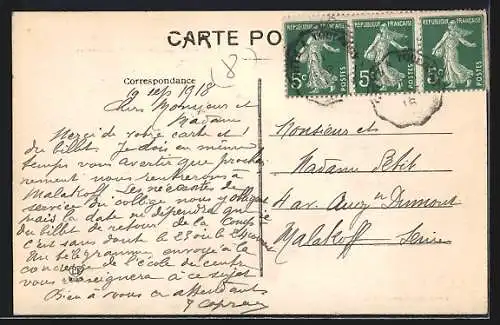 CARTE PO
Correspondance
(87
19 sep 1918
Chers Monsieur et
Madame
Merci de votre carte et
du billet. Je dois en même
temps vous avertir que proch
rement nous rentrerons à
Malakoff. Les nécessités de
service du collège nous y obligent
mais la date ne dépendra que
du billet de retour de la
c'est sans doute le 28 ou le
Un télégramme envoyé à la
concierge de l'école du centre
vous renseignera à ce sujet
Bien à vous en attendant
REPUBLIQUE FRANÇAISE
5c
POSTES
REPUBLIQUE FRANÇAISE
5c
POSTES
REPUBLIQUE FRANÇAISE
5c
POSTES
Monsieur et
Madame Petit
4 av. Dumont
Malakoff
Seine